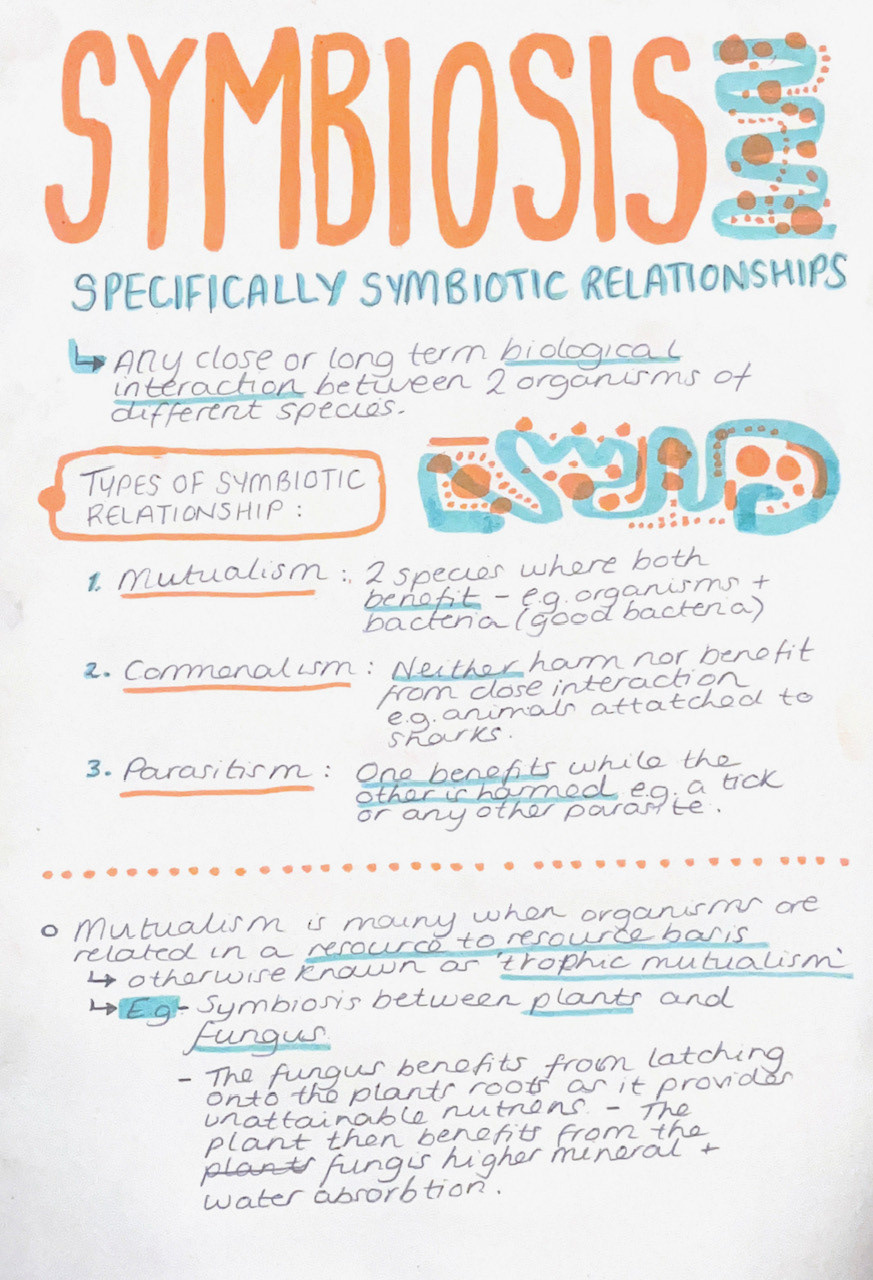 SYMBIOSIS
SPECIFICALLY SYMBIOTIC RELATIONSHIPS
↳ Any close or long term biological
interaction between 2 organisms of
different species.
TYPES OF SYMBIOTIC
RELATIONSHIP :
1. Mutualism : 2 species where both
benefit - e.g. organisms +
bacteria (good bacteria)
2. Commenalism : Neither harm nor benefit
from close interaction
e.g. animals attatched to
sharks.
3. Parasitism : One benefits while the
other is harmed e.g. a tick
or any other parasite.
o Mutualism is mainy when organisms are
related in a resource to resource basis
↳ otherwise known as 'trophic mutualism'
↳ E.g - Symbiosis between plants and
fungus
- The fungus benefits from latching
onto the plants roots as it provides
unattainable nutrens - The
plant then benefits from the
plants fungis higher mineral +
water absorbtion.